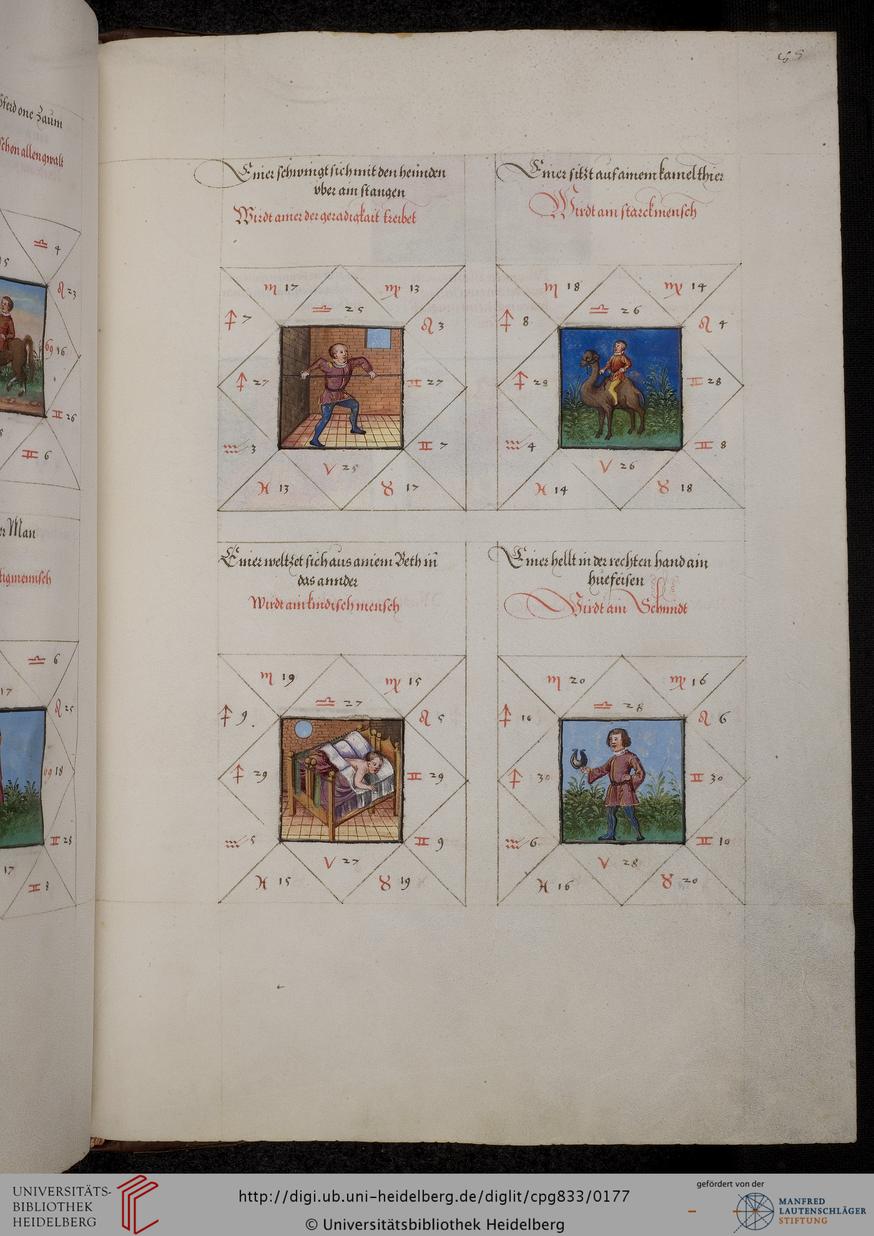 pferd one Zaum
schen allen gwalt
♎ 4
15
♌ 23
69 16
♊ 26
♊ 6
er Man
tigmennsch
♎ 6
17
♌ 25
69 18
♊ 28
17
♊ 8
Einer schwingt sich mit den hennden
vber ain stangen
Wirdt ainer der geradigkait treibet
♏ 17
♍ 13
♎ 25
♐ 7
♌ 3
♐ 27
♊ 27
♒ 3
♊ 7
V 25
♓ 13
♉ 17
Einer sitzt auf ainem kamelthier
Wirdt ain starckmensch
♏ 18
♍ 14
♎ 26
♐ 8
♌ 4
♐ 28
♊ 28
♒ 4
♊ 8
V 26
♓ 14
♉ 18
Einer weltzet sich aus ainem Beth in
das annder
Wirdt ain kindisch mensch
♏ 19
♍ 15
♎ 27
♐ 9
♌ 5
♐ 29
♊ 29
♒ 5
♊ 9
V 27
♓ 15
♉ 19
Einer hellt in der rechten hand ain
huefeisen
Wirdt ain Schmidt
♏ 20
♍ 16
♎ 28
♐ 10
♌ 6
♐ 30
♊ 30
♒ 6
♊ 10
V 28
♓ 16
♉ 20
UNIVERSITÄTS-
BIBLIOTHEK
HEIDELBERG
http://digi.ub.uni-heidelberg.de/diglit/cpg833/0177
© Universitätsbibliothek Heidelberg
gefördert von der
MANFRED
LAUTENSCHLÄGER
STIFTUNG